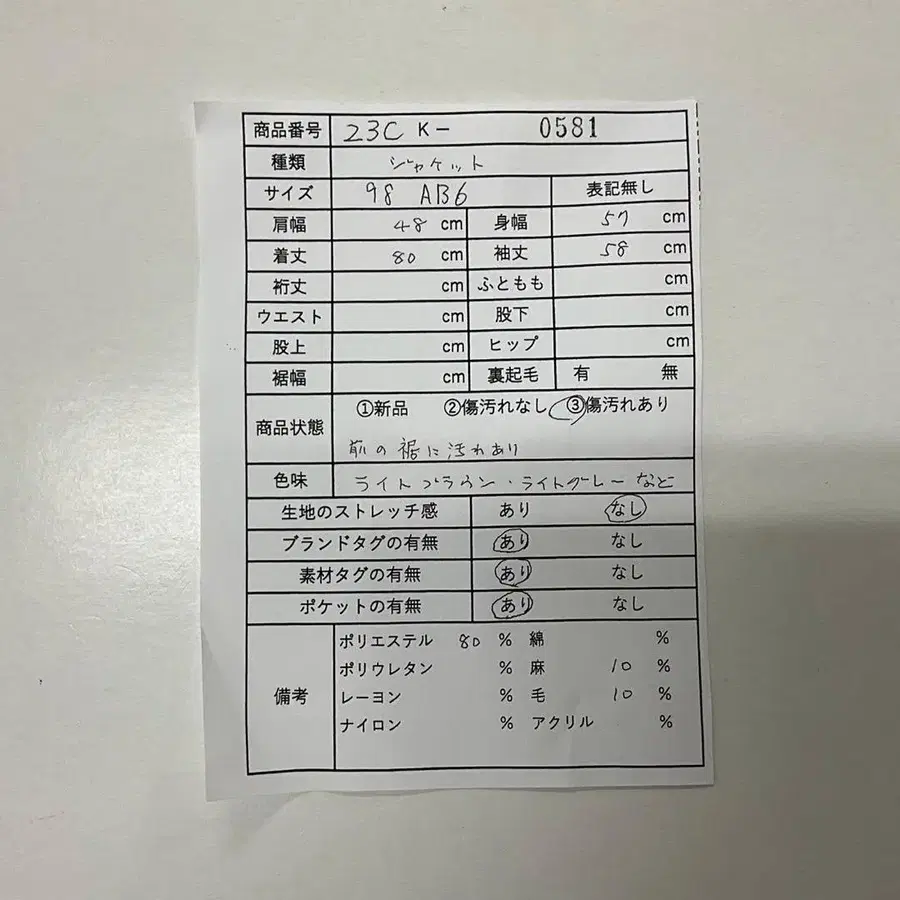 商品番号 23C K- 0581
種類 ジャケット
サイズ 98 AB6 表記無し
肩幅 48 cm 身幅 57 cm
着丈 80 cm 袖丈 58 cm
裄丈 cm ふともも cm
ウエスト cm 股下 cm
股上 cm ヒップ cm
裾幅 cm 裏起毛 有 無
商品状態 ①新品 ②傷汚れなし ③傷汚れあり
前の裾に汚れあり
色味 ライトブラウン・ライトグレーなど
生地のストレッチ感 あり なし
ブランドタグの有無 あり なし
素材タグの有無 あり なし
ポケットの有無 あり なし
備考 ポリエステル 80 % 綿 %
ポリウレタン % 麻 10 %
レーヨン % 毛 10 %
ナイロン % アクリル %